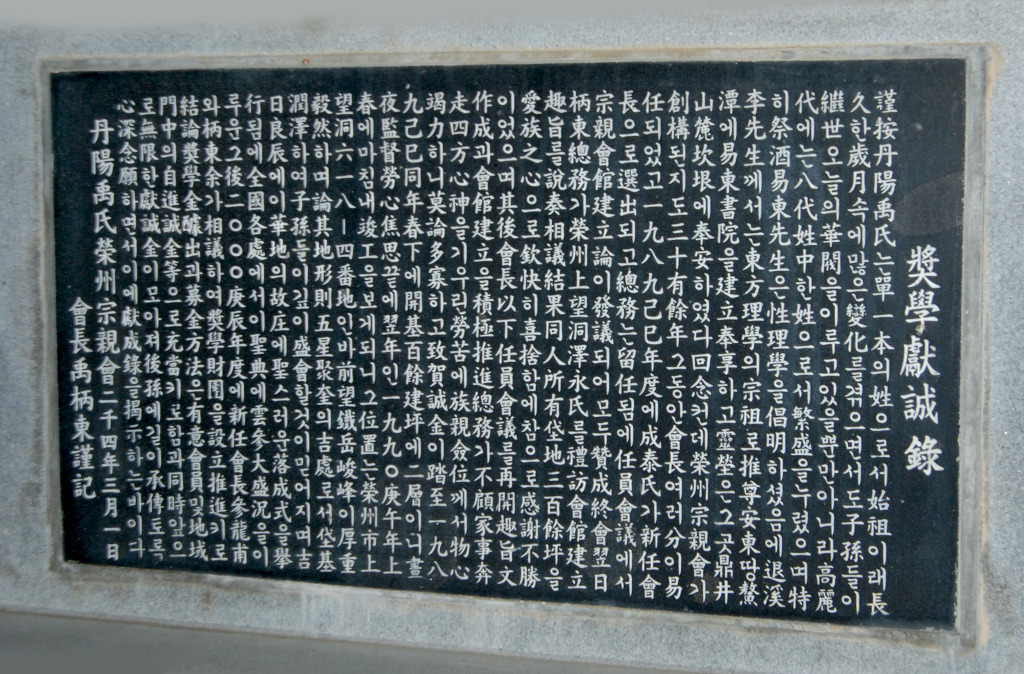 獎學獻誠錄
謹按丹陽禹氏는單一本의姓으로서始祖이래長
久한歲月속에많은變化를겪으면서도子孫들이
繼世오늘의華閥을이루고있을뿐만아니라高麗
代에는八代姓中한姓으로서繁盛을누렸으며特
히祭酒易東先生은性理學을倡明하셨음에退溪
李先生께서는東方理學의宗祖로推尊安東땅鰲
潭에易東書院을建立奉享하고靈塋은그곳鼎井
山麓坎垠에奉安하였다回念컨데榮州宗親會가
創構된지도三十有餘年그동안會長여러분이易
任되었고一九八九己巳年度에成泰氏가新任會
長으로選出되고總務는留任됨에任員會議에서
宗親會館建立論이發議되어모두贊成終會翌日
柄東總務가榮州上望洞澤永氏를禮訪會館建立
趣旨를說奏相議結果同人所有垈地三百餘坪을
愛族之心으로欽快히喜捨함에참으로感謝不勝
이었으며其後會長以下任員會議를再開趣旨文
作成과會館建立을積極推進總務가不顧家事奔
走四方心神을기우린勞苦에族親僉位께서物心
竭力하니莫論多寡하고致賀誠金이踏至一九八
九己巳同年春下에開基百餘建坪에二層이니晝
夜監督勞心焦思끝에翌年인一九九０庚午年上
春에마침내竣工을보게되니그位置는榮州市上
望洞六一八-四番地인바前望鐵岳峻峰이厚重
毅然하며論其地形則五星聚奎의吉處로서垈基
潤澤하여子孫들이깊이盛會할것이믿어지며吉
日良辰에이華地의故庄에聖스러운落成式을擧
行됨에全國各處에서이聖典에雲參大盛況을이
루운그後二０００庚辰年度에新任會長參龍甫
와柄東余가相議하여獎學財團을設立推進키로
結論獎學金醵出과募金方法은有意會員및地域
門中의自進誠金等으로充當키로함과同時앞으
로無限한獻誠金이모아저後孫에길이承傳토록
心深念願하면서이에獻成錄을揭示하는바이다
丹陽禹氏榮州宗親會二千四年三月一日
會長禹柄東謹記